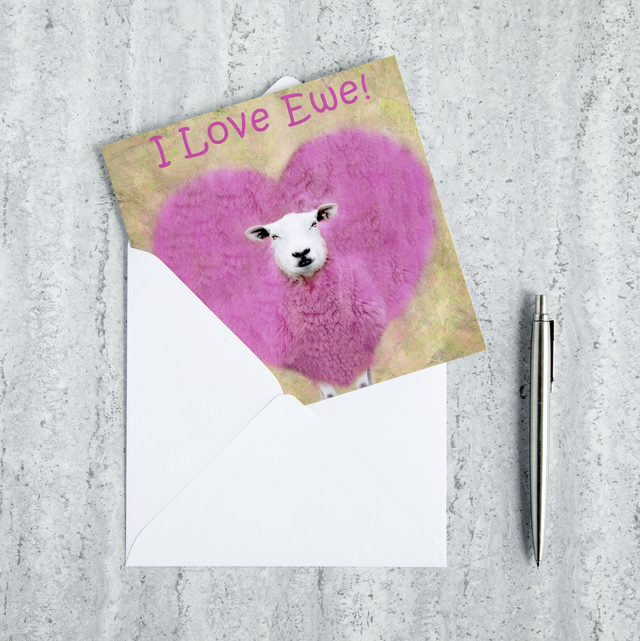 I Love Ewe!